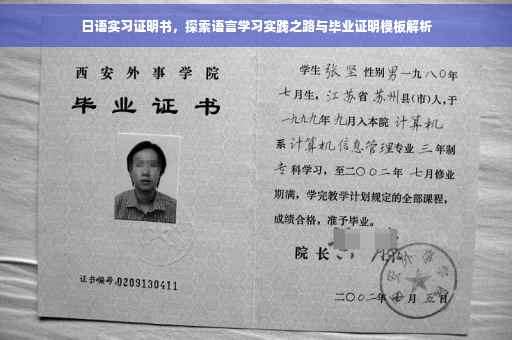 日语实习证明书，探索语言学习实践之路与毕业证明模板解析
西安外事学院
毕业证书
证书编号:0209130411
学生 张坚 性别 男 一九八〇年
七月生，江苏省 苏州县(市)人,于
一九九九年 九月入本院 计算机
系 计算机信息管理专业 三 年制
专 科学习，至二〇〇二年 七月修业
期满，学完教学计划规定的全部课程，
成绩合格，准予毕业。
院长
二〇〇二年 七 月 五 日